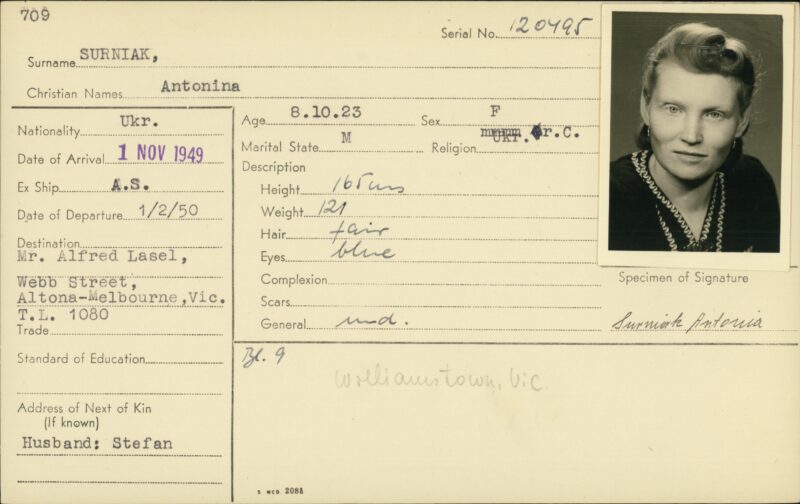 709
Serial No. 120495
Surname SURNIAK,
Christian Names Antonina
Nationality Ukr.
Date of Arrival 1 NOV 1949
Ex Ship A.S.
Date of Departure 1/2/50
Destination
Mr. Alfred Lasel,
Webb Street,
Altona-Melbourne, Vic.
T.L. 1080
Trade
Standard of Education
Address of Next of Kin
(If known)
Husband: Stefan
Age 8.10.23 Sex F
Marital State M Religion UKr. Gr.C.
Description
Height 165 cms
Weight 121
Hair fair
Eyes blue
Complexion
Scars
General
Specimen of Signature
Surniak Antonia
Bl. 9
Williamstown, Vic.